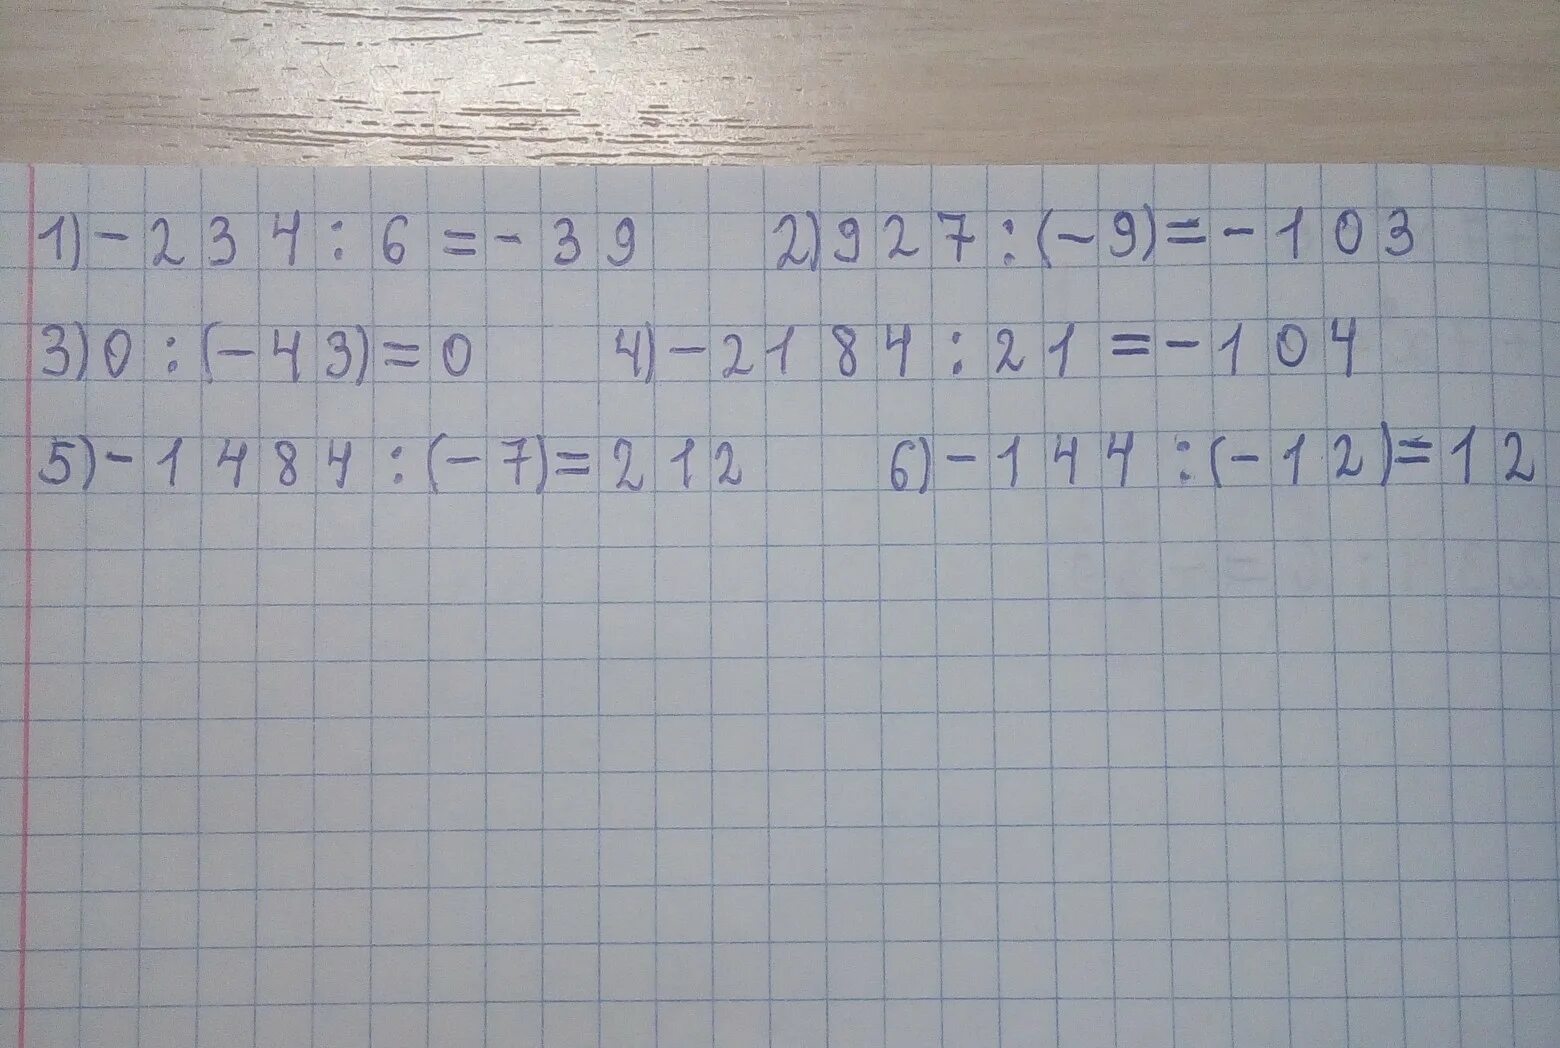 1) - 234 : 6 = - 39 2) 927 : (- 9) = - 103
3) 0 : (- 43) = 0 4) - 2184 : 21 = - 104
5) - 1484 : (- 7) = 212 6) - 144 : (- 12) = 12